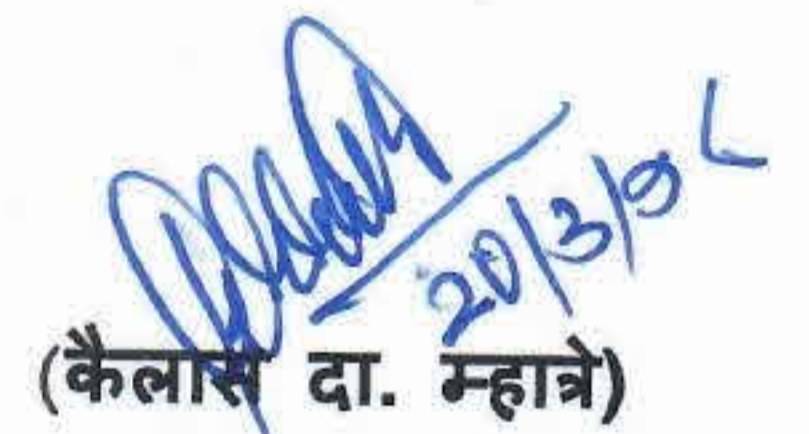 20/3/१८
(कैलास दा. म्हात्रे)